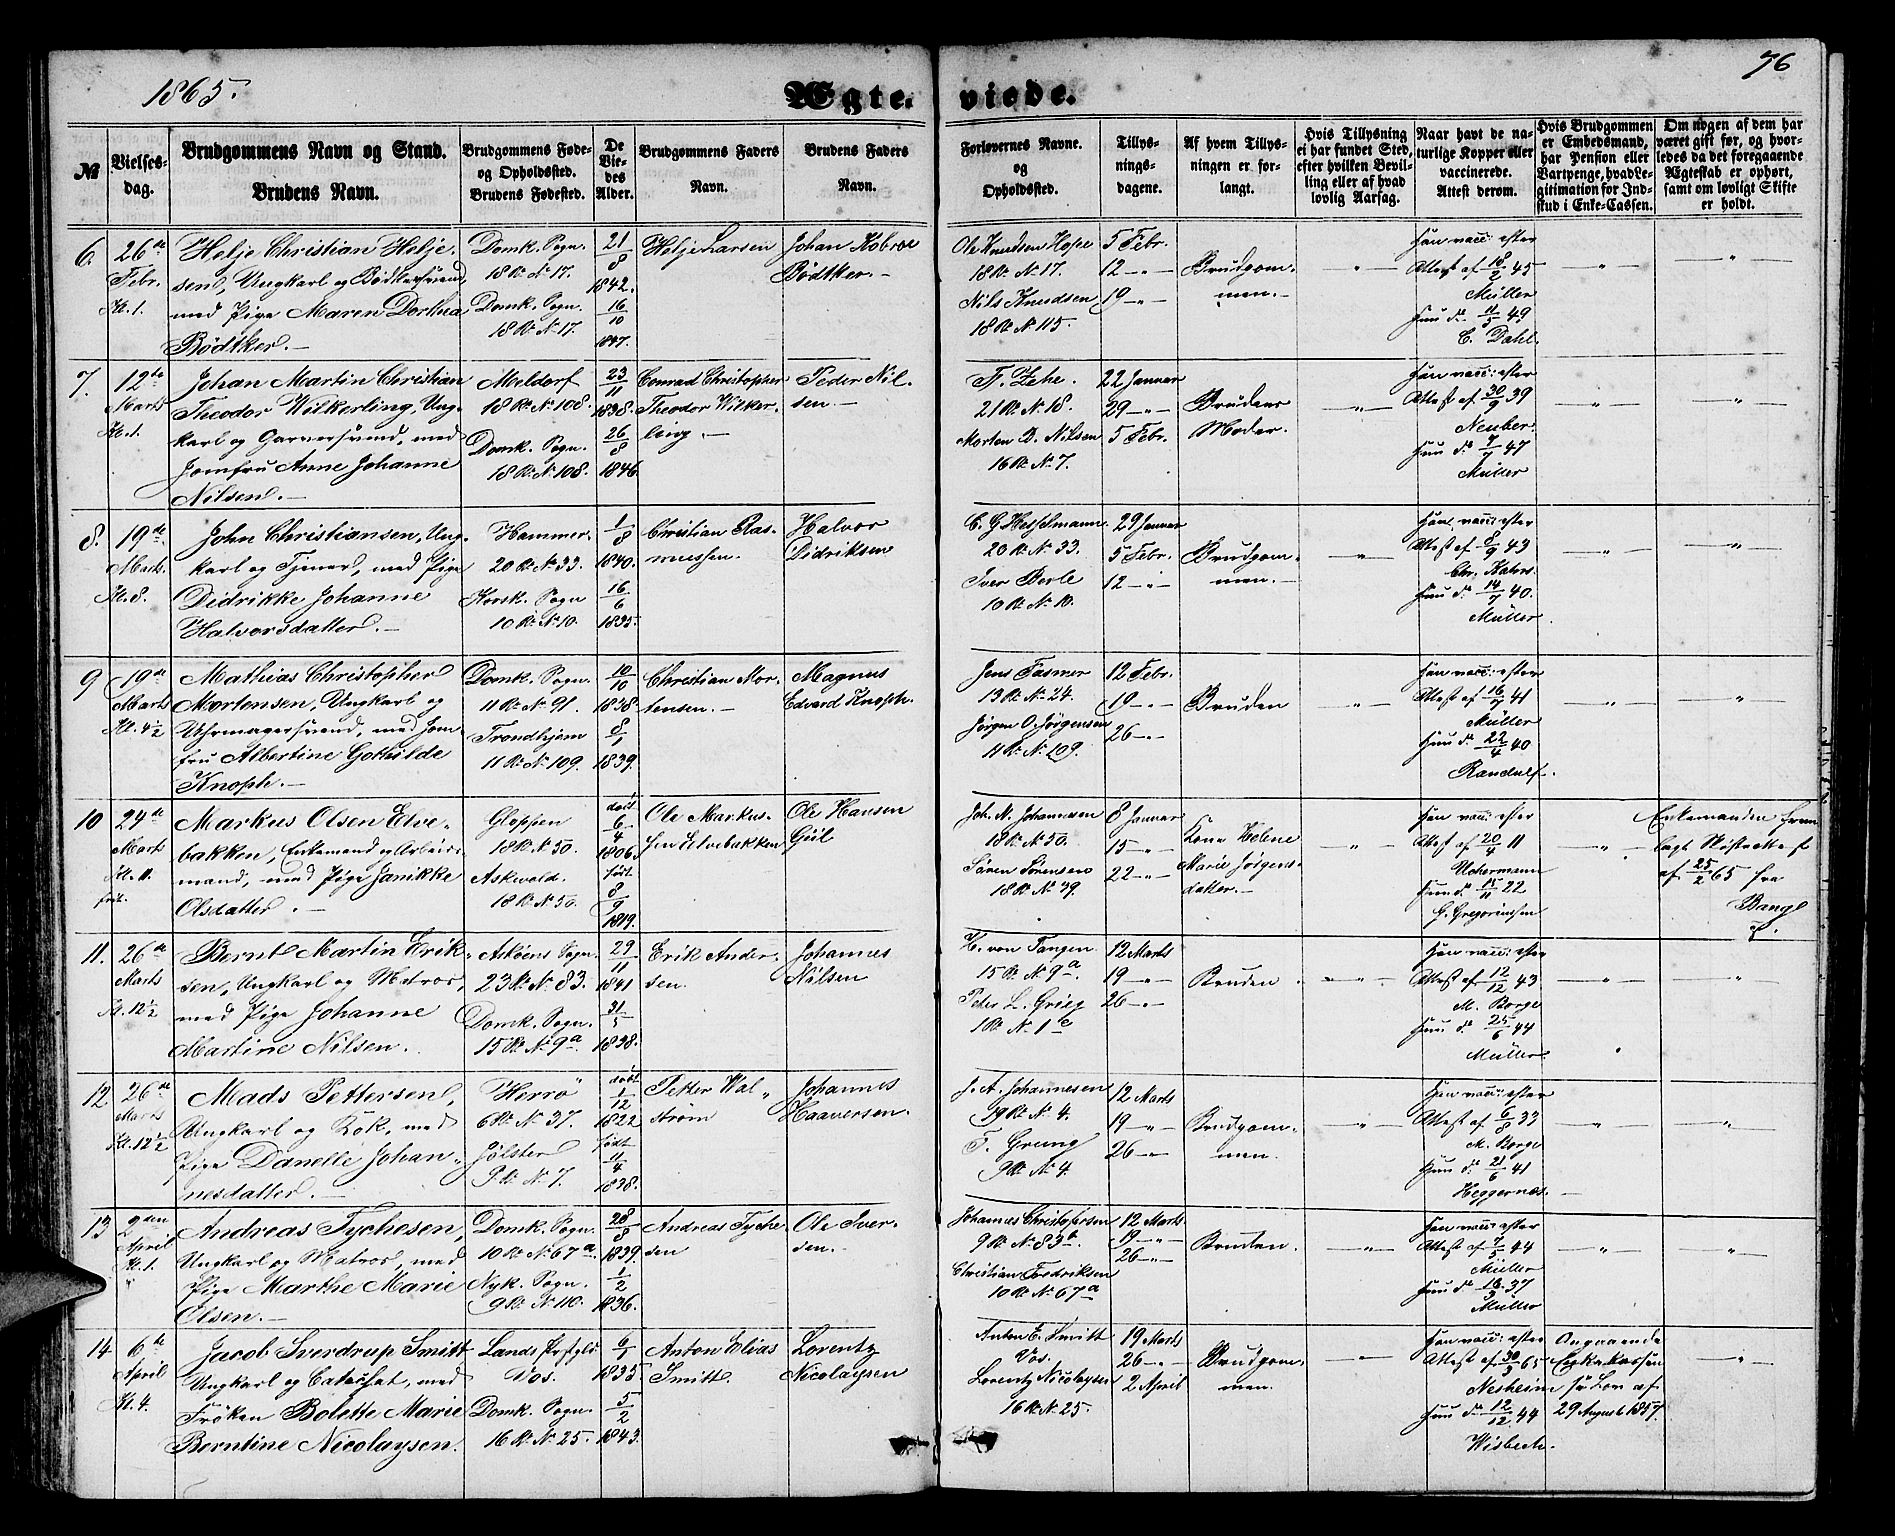 1865.
Ægte-
viede.
76
№
Vielses-
dag.
Brudgommens Navn og Stand.
Brudens Navn.
Brudgommens Føde-
og Opholdssted.
Brudens Fødested.
De
Vie-
des
Alder.
Brudgommens Faders
Navn.
Brudens Faders
Navn.
Forlovernes Navne.
og
Opholdssted.
Tillys-
nings-
dagene.
Af hvem Tillys-
ningen er for-
langt.
Hvis Tillysning
ei har fundet Sted,
efter hvilken Bevil-
ling eller af hvad
lovlig Aarsag.
Naar havt de na-
turlige Kopper eller
vaccinerede.
Attest derom.
Hvis Brudgommen
er Embedsmand,
har Pension eller
Vartpenge, hvad Le-
gitimation for Ind-
skud i Enke-Cassen.
Om nogen af dem har
været gift før, og hvor-
ledes da det foregaaende
Ægteskab er ophørt,
samt om lovligt Skifte
er holdt.
6.
26de
Febr.
Kl. 1.
Helje Christian Helje-
sen, Ungkarl og Bødkersvend,
med Pige Maren Dorthea
Bødtker.
Domk. Sogn.
18 R. N. 17.
Domk. Sogn.
18 R. N. 17.
21/8
1842.
16/10
1847.
Helje Larsen
Johan Kobroe
Bødtker.
Ole Knudsen Hope
18 R. N. 17.
Nils Knudsen
18 R. N. 115.
5 Febr.
12 — "
19 — "
Brudgom-
men.
"
Han vacc: efter
Attest af 18/2 45
Müller
Hun do 11/5 49
C. Dahl.
"
"
7.
12te
Marts
Kl. 1.
Johan Martin Christian
Theodor Wilkerling, Ung-
karl og Garversvend, med
Jomfru Anne Johanne
Nilsen.
Meldorf
18 R. N. 108.
Domk. Sogn.
18 R. N. 108.
23/11
1838.
26/8
1846.
Conrad Christopher
Theodor Wilker-
ling.
Peder Nil-
sen.
F. Zehe.
21 R. N. 18.
Morten D. Nilsen
16 R. N. 7.
22 Januar
29 — "
5 Febr.
Brudens
Moder.
"
Han vacc: efter
Attest af 30/9 39
Neuber.
Hun do 7/7 47
Müller
"
"
8.
19de
Marts.
Kl. 8.
John Christiansen, Ung-
karl og Tjener, med Pige
Didrikke Johanne
Halvorsdatter.
Hammer.
20 R. N. 33.
Korsk. Sogn
10 R. N. 10.
1/8
1840.
16/6
1835.
Christian Ras-
mussen.
Halvor
Didriksen
C. G. Hesselmann.
20 R. N. 33.
Iver Berle
10 R. N. 10.
29 Januar
5 Febr.
12 — "
Brudgom-
men.
"
Han vacc: efter
Attest af 8/9 43
Chr. Kahrs.
Hun do 14/7 40.
Müller.
"
"
9
19de
Marts
Kl. 4½
Mathias Christopher
Mortensen, Ungkarl og
Uhrmagersvend, med Jom-
fru Albertine Gothilde
Knoph.
Domk. Sogn.
11 R. N. 91.
Trondhjem
11 R. N. 109.
10/10
1838
8/1
1839.
Christian Mor-
tensen.
Magnus
Edvard Knoph.
Jens Fasmer
13 R. N. 24.
Jørgen O. Jørgensen
11 R. N. 109.
12 Febr.
19 — "
26 — "
Bruden
"
Han vacc: efter
Attest af 16/7 41
Müller
Hun do 22/4 40
Randulf.
"
"
10
24de
Marts
Kl. 11.
Markus Olsen Elve-
bakken, Enkemand og Arbeids-
mand, med Pige Janikke
Olsdatter.
Gloppen
18 R. N. 50.
Askevold.
18 R. N. 50.
døbt
6/4
1806.
født
8/9
1819.
Ole Markus-
sen Elvebakken
Ole Hansen
Joh. N. Johannesen
18 R. N. 50.
Søren Sørensen
18 R. N. 39.
8 Januar
15 — "
22 — "
Kone Helene
Marie Jørgens-
datter.
"
Han vacc: efter
Attest af 20/4 11
Uchermann
Hun do 15/11 22
G. Gregoriussen
"
Enkemanden frem-
lagt Skifteattest
af 25/2 65 fra
Bang
11.
26de
Marts
Kl. 12½
Bernt Martin Erik-
sen, Ungkarl og Matros,
med Pige Johanne
Martine Nilsen.
Askøens Sogn.
23 R. N. 83.
Domk. Sogn.
15 R. N. 9a.
29/11
1841
31/5
1838.
Erik Ander-
sen.
Johannes
Nilsen
H. von Tangen
15 R. N. 9a.
Peter L. Grieg
1 R. N. 1c
12 Marts
19 — "
26 — "
Bruden.
"
Han vacc: efter
Attest af 12/12 43
M. Borge
Hun do 25/6 44
Müller
"
"
12
26de
Marts
Kl. 12½
Mads Pettersen,
Ungkarl og Kok, med
Pige Danelle Johan-
nesdatter.
Herrø
6 R. N. 37.
Jølster
9 R. N. 7.
døbt
1/12
1822
født
11/4
1838.
Petter Wal-
strøm
Johannes
Haaversen.
J. A. Johannesen
19 R. N. 4.
T. Grung
9 R. N. 4.
12 Marts
19 — "
26 — "
Brudgom-
men.
"
Han vacc: efter
Attest af 6/8 33
M. Borge
Hun do 21/6 41
Heggernæs.
"
"
13
2den
April
Kl. 1.
Andreas Tychesen,
Ungkarl og Matros, med
Pige Marthe Marie
Olsen.
Domk. Sogn.
10 R. N. 67a.
Nyk. Sogn.
9 R. N. 110.
28/8
1839.
1/2
1836.
Andreas Tyche-
sen
Ole Iver-
sen.
Johannes Christophersen
9 R. N. 83b.
Christian Fredriksen
10 R. N. 67a
12 Marts
19 — "
26 — "
Bruden.
"
Han vacc: efter
Attest af 7/5 44
Müller
Hun do 18/3 37
Müller
"
"
14
6te
April
Kl. 4.
Jacob Sverdrup Smitt
Ungkarl og Catechet, med
Frøken Bolette Marie
Berntine Nicolaysen.
Lands Præstgld
Vos.
Domk. Sogn.
16 R. N. 25.
6/1
1835
5/2
1843.
Anton Elias
Smitt.
Lorentz
Nicolaysen
Anton E. Smitt
Vos.
Lorentz Nicolaysen
16 R. N. 25.
19 Marts
26 — "
2 April
Brudgom-
men.
"
Han vacc: efter
Attest af 30/3 65
Nesheim
Hun do 12/12 44
Wisbech.
Angaaende
Enkekassen
se Lov af
29 August 1857.
"